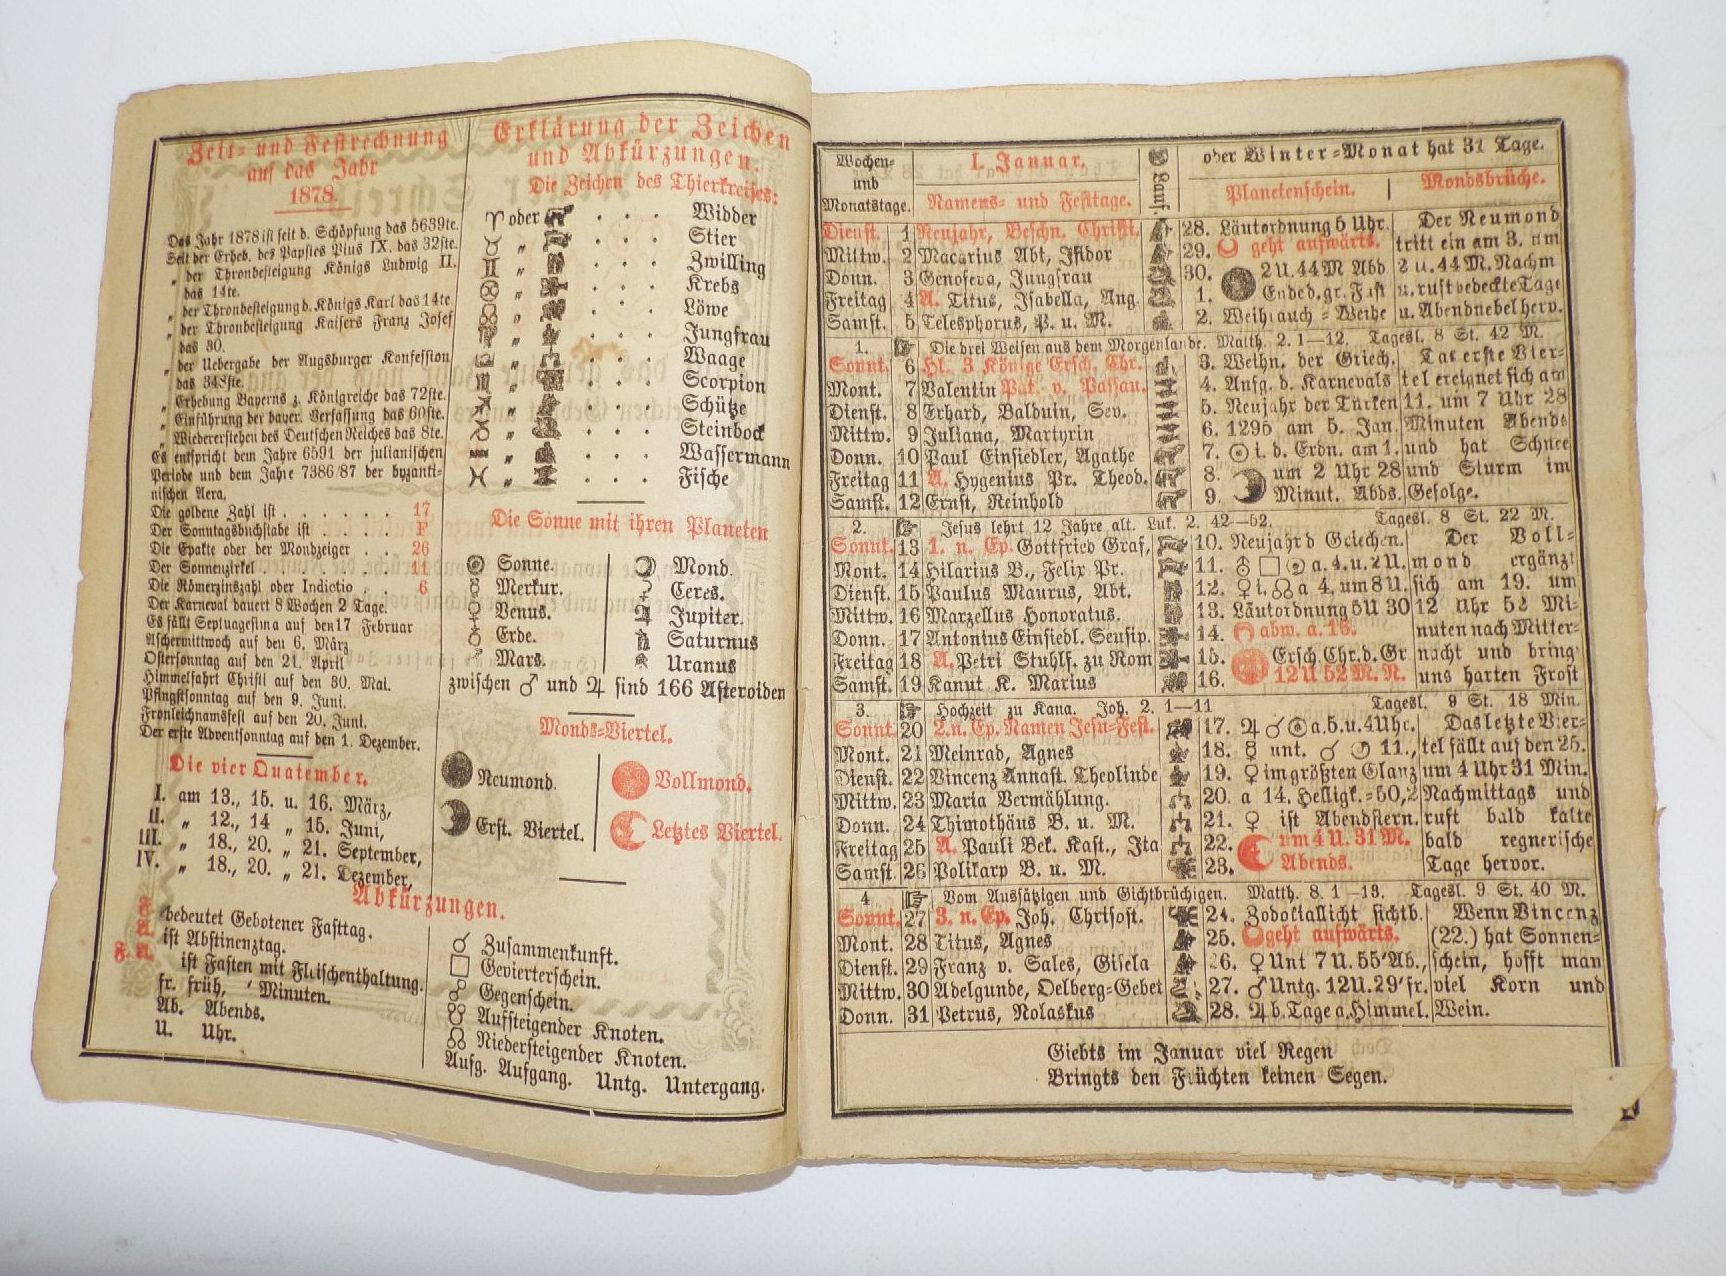 Zeit- und Festrechnung
auf das Jahr
1878.
Das Jahr 1878 ist seit d. Schöpfung das 5639te.
Seit der Erheb. des Papstes Pius IX. das 32ste.
„ der Thronbesteigung Königs Ludwig II.
das 14te.
„ der Thronbesteigung d. Königs Karl das 14te.
„ der Thronbesteigung Kaisers Franz Josef
das 30.
„ der Uebergabe der Augsburger Konfession
das 348ste.
„ Erhebung Bayerns z. Königreiche das 72ste.
„ Einführung der bayer. Verfassung das 60ste.
„ Wiedererstehen des Deutschen Reiches das 8te.
Es entspricht dem Jahre 6591 der julianischen
Periode und dem Jahre 7386/87 der byzanti-
nischen Aera.
Die goldene Zahl ist . . . . . . 17
Der Sonntagsbuchstabe ist . . . . F
Die Epakte oder der Mondzeiger . . 26
Der Sonnenzirkel . . . . . . . 11
Die Römerzinszahl oder Indictio . . 6
Der Karneval dauert 8 Wochen 2 Tage.
Es fällt Septuagesima auf den 17 Februar
Aschermittwoch auf den 6. März
Ostersonntag auf den 21. April
Himmelfahrt Christi auf den 30. Mai.
Pfingstsonntag auf den 9. Juni.
Fronleichnamsfest auf den 20. Juni.
Der erste Adventsonntag auf den 1. Dezember.
Die vier Quatember.
I. am 13., 15. u. 16. März,
II. „ 12., 14 „ 15. Juni,
III. „ 18., 20. „ 21. September,
IV. „ 18., 20. „ 21. Dezember,
Erklärung der Zeichen
und Abkürzungen.
Die Zeichen des Thierkreises:
♈ oder . . . Widder
♉ „ . . . Stier
♊ „ . . . Zwilling
„ . . . Krebs
„ . . . Löwe
„ . . . Jungfrau
„ . . . Waage
♏ „ . . . Scorpion
♐ „ . . . Schütze
♑ „ . . . Steinbock
♒ „ . . . Wassermann
♓ „ . . . Fische
Die Sonne mit ihren Planeten
☉ Sonne.
☿ Merkur.
♀ Venus.
♁ Erde.
♂ Mars.
☽ Mond.
⚳ Ceres.
♃ Jupiter.
♄ Saturnus
♅ Uranus
zwischen ♂ und ♃ sind 166 Asteroiden
Monds-Viertel.
Neumond.
Vollmond.
Erst. Viertel.
Letztes Viertel.
Abkürzungen.
F. bedeutet Gebotener Fasttag.
A. ist Abstinenztag.
F. A. ist Fasten mit Fleischenthaltung.
fr. früh, ′ Minuten.
Ab. Abends.
U. Uhr.
☌ Zusammenkunft.
□ Gevierterschein.
☍ Gegenschein.
☊ Aufsteigender Knoten.
☋ Niedersteigender Knoten.
Aufg. Aufgang. Untg. Untergang.
Wochen-
und
Monatstage.
I. Januar.
Namens- und Festtage.
☾ Lauf.
oder Winter-Monat hat 31 Tage.
Planetenschein. | Mondsbrüche.
Dienst. 1 Neujahr, Beschn. Christi. 28. Läutordnung 5 Uhr. Der Neumond
Mittw. 2 Macarius Abt, Isidor 29. geht aufwärts. tritt ein am 3. um
Donn. 3 Genofeva, Jungfrau 30. 2 U. 44 M Abd 2 u. 44 M. Nachm
Freitag 4 A. Titus, Isabella, Ang. 1. Ende d. gr. Fast u. ruft bedeckte Tage
Samst. 5 Telesphorus, P. u. M. 2. Weihrauch-Weihe u. Abendnebel herv.
1. Die drei Weisen aus dem Morgenlande. Matth. 2. 1—12. Tagesl. 8 St. 42 M.
Sonnt. 6 Hl. 3 Könige Ersch. Chr. 3. Weihn. der Griech. Das erste Vier-
Mont. 7 Valentin Pat. v. Passau. 4. Anfg. d. Karnevals tel ereignet sich am
Dienst. 8 Erhard, Balduin, Sev. 5. Neujahr der Türken 11. um 7 Uhr 28
Mittw. 9 Juliana, Martyrin 6. 1295 am 5. Jan. Minuten Abends
Donn. 10 Paul Einsiedler, Agathe 7. ☉ i. d. Erdn. am 1. und hat Schnee
Freitag 11 A. Hygenius Pr. Theod. 8. um 2 Uhr 28 und Sturm im
Samst. 12 Ernst, Reinhold 9. Minut. Abds. Gefolge.
2. Jesus lehrt 12 Jahre alt. Luk. 2. 42—52. Tagesl. 8 St. 22 M.
Sonnt. 13 1. n. Ep. Gottfried Graf, 10. Neujahr d Griechen. Der Voll-
Mont. 14 Hilarius B., Felix Pr. 11. ♁ □ ☉ a. 4. u. 2 U. mond ergänzt
Dienst. 15 Paulus Maurus, Abt. 12. ♀ i. ☊ a 4. um 8 U. sich am 19. um
Mittw. 16 Marzellus Honoratus. 13. Läutordnung 5 U 30 12 Uhr 52 Mi-
Donn. 17 Antonius Einsiedl. Seusip. 14. abw. a. 16. nuten nach Mitter-
Freitag 18 A. Petri Stuhlf. zu Rom 15. Ersch. Chr. d. Gr nacht und bringt
Samst. 19 Kanut K. Marius 16. 12 U 52 M. N. uns harten Frost
3. Hochzeit zu Kana. Joh. 2. 1—11 Tagesl. 9 St. 18 Min.
Sonnt. 20 2. n. Ep. Namen Jesu-Fest. 17. ♃ ☌ ☉ a. 5. u. 4 Uhr. Das letzte Vier-
Mont. 21 Meinrad, Agnes 18. ☿ unt. ☌ ☉ 11., tel fällt auf den 25.
Dienst. 22 Vincenz Annast. Theolinde 19. ♀ im größten Glanz um 4 Uhr 31 Min.
Mittw. 23 Maria Vermählung. 20. a 14. Helligk.=50,2 Nachmittags und
Donn. 24 Thimothäus B. u. M. 21. ♀ ist Abendstern. ruft bald kalte
Freitag 25 A. Pauli Bek. Kast., Ita 22. um 4 U. 31 M. bald regnerische
Samst. 26 Polikarp B. u. M. 23. Abends. Tage hervor.
4 Vom Aussätzigen und Gichtbrüchigen. Matth. 8. 1—13. Tagesl. 9 St. 40 M.
Sonnt. 27 3. n. Ep. Joh. Chrisost. 24. Zodokiallicht sichtb. Wenn Vincenz
Mont. 28 Titus, Agnes 25. geht aufwärts. (22.) hat Sonnen-
Dienst. 29 Franz v. Sales, Gisela 26. ♀ Unt 7 U. 55′ Ab., schein, hofft man
Mittw. 30 Adelgunde, Oelberg-Gebet 27. ♂ Untg. 12 U. 29′ fr. viel Korn und
Donn. 31 Petrus, Nolaskus 28. ♃ b. Tage a. Himmel. Wein.
Giebts im Januar viel Regen
Bringts den Früchten keinen Segen.